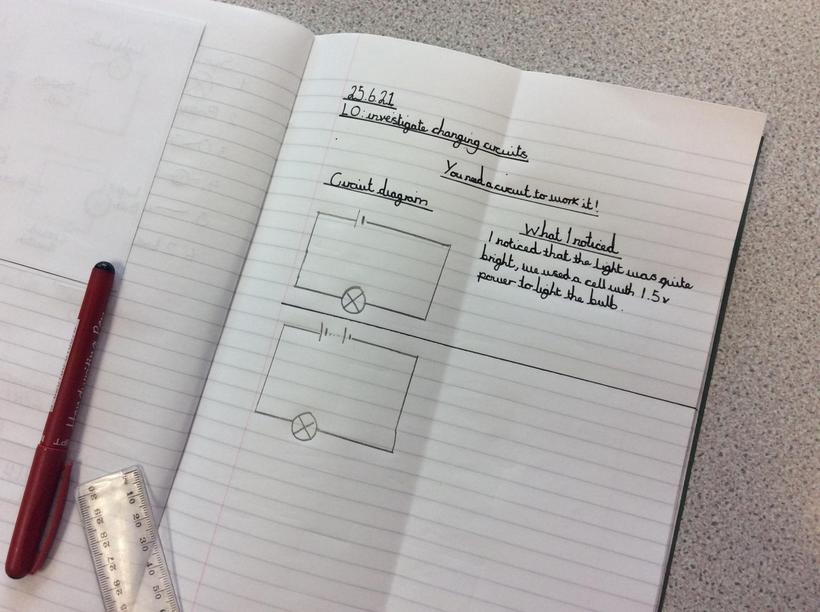 25.6.21
LO: investigate changing circuits
You need a circuit to work it!
Circuit diagram
What I noticed
I noticed that the light was quite
bright, we used a cell with 1.5v
power to light the bulb.
Handwriting Pen
30 29 28 27 26 25